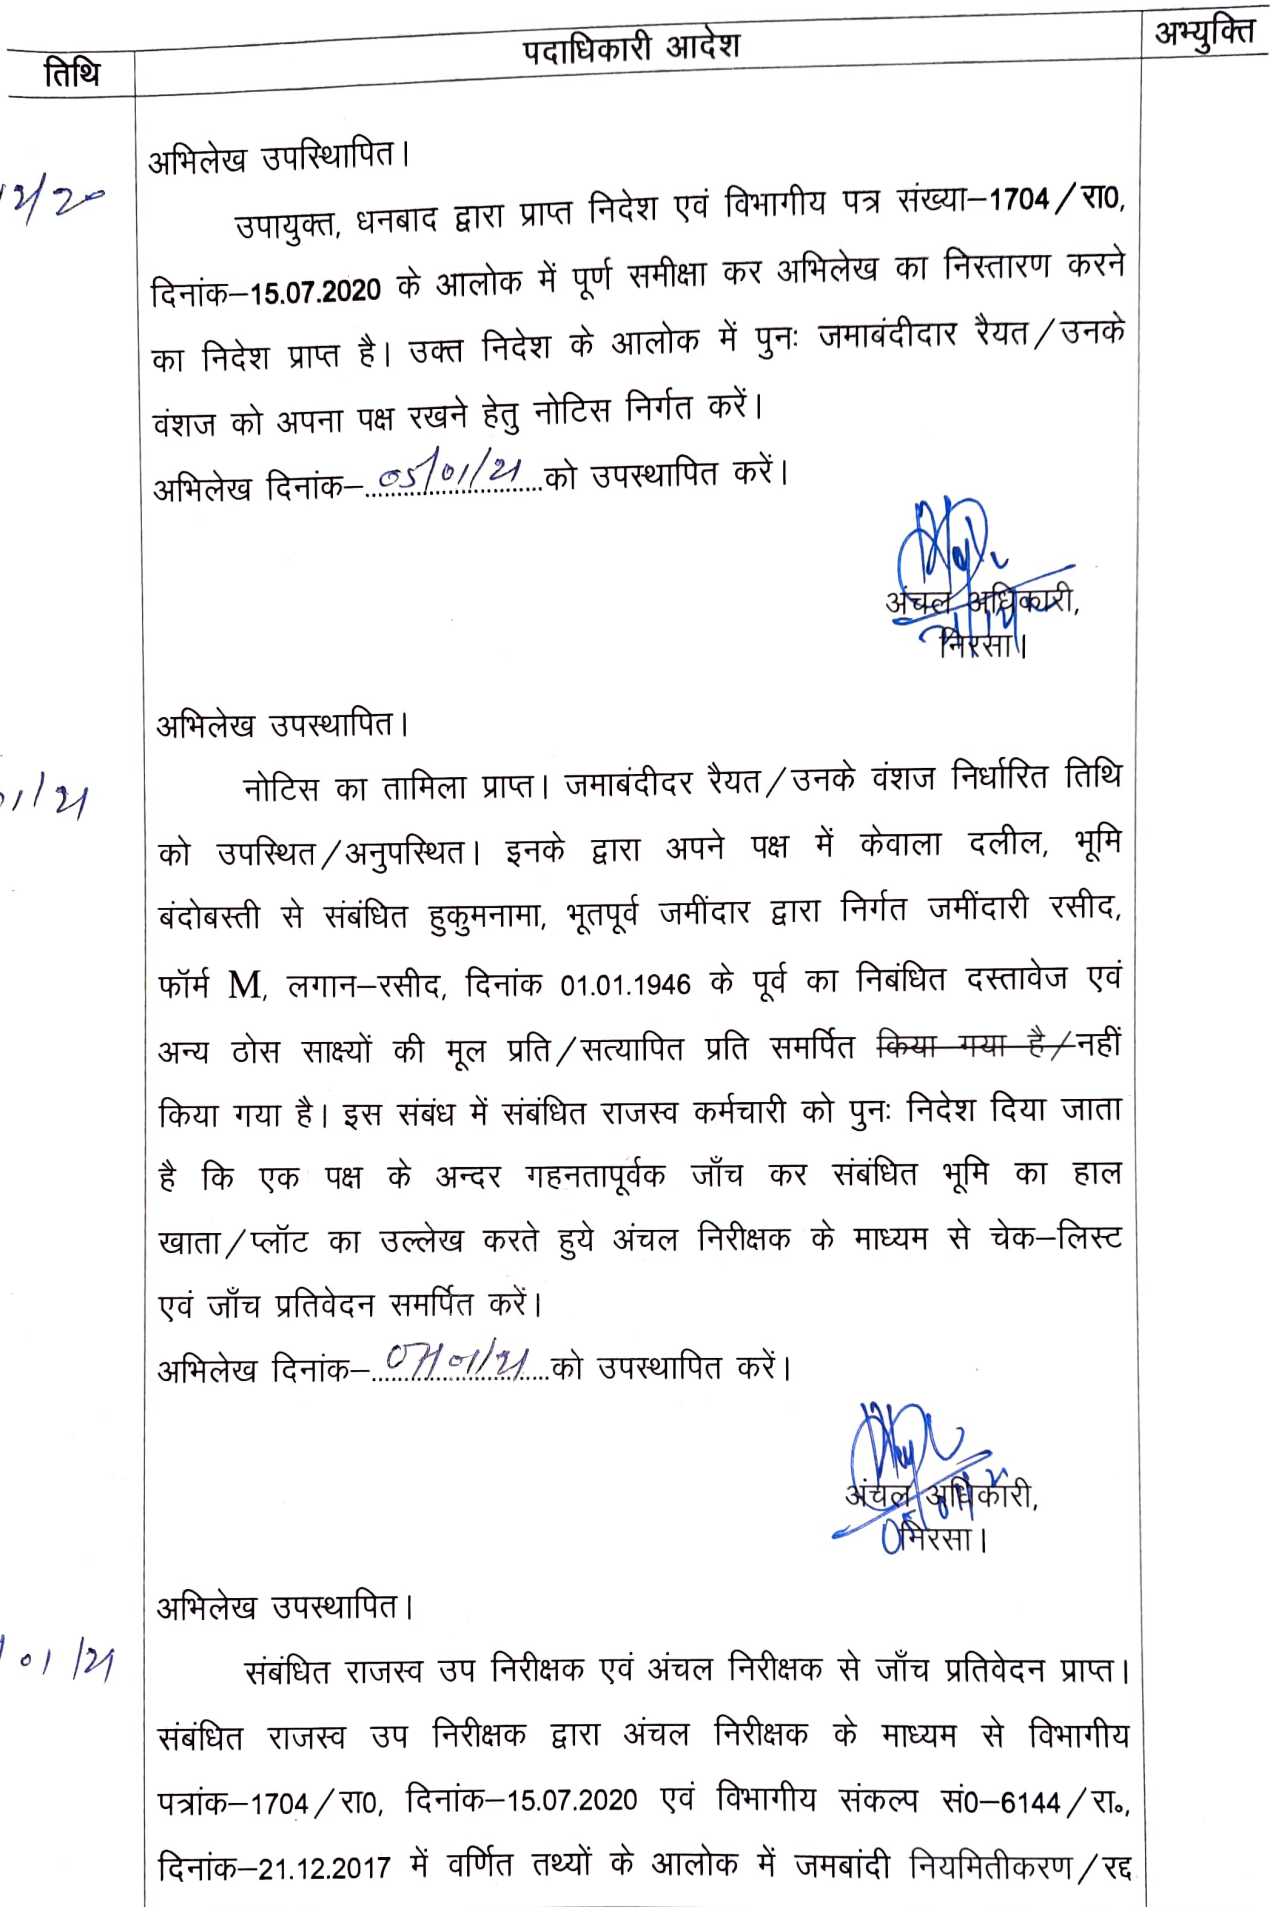 तिथि
पदाधिकारी आदेश
अभ्युक्ति
अभिलेख उपस्थापित।
12/20
उपायुक्त, धनबाद द्वारा प्राप्त निदेश एवं विभागीय पत्र संख्या–1704/रा0,
दिनांक–15.07.2020 के आलोक में पूर्ण समीक्षा कर अभिलेख का निस्तारण करने
का निदेश प्राप्त है। उक्त निदेश के आलोक में पुनः जमाबंदीदार रैयत/उनके
वंशज को अपना पक्ष रखने हेतु नोटिस निर्गत करें।
अभिलेख दिनांक–05/01/21को उपस्थापित करें।
अंचल अधिकारी,
निरसा।
अभिलेख उपस्थापित।
01/21
नोटिस का तामिला प्राप्त। जमाबंदीदर रैयत/उनके वंशज निर्धारित तिथि
को उपस्थित/अनुपस्थित। इनके द्वारा अपने पक्ष में केवाला दलील, भूमि
बंदोबस्ती से संबंधित हुकुमनामा, भूतपूर्व जमींदार द्वारा निर्गत जमींदारी रसीद,
फॉर्म M, लगान–रसीद, दिनांक 01.01.1946 के पूर्व का निबंधित दस्तावेज एवं
अन्य ठोस साक्ष्यों की मूल प्रति/सत्यापित प्रति समर्पित किया गया है/नहीं
किया गया है। इस संबंध में संबंधित राजस्व कर्मचारी को पुनः निदेश दिया जाता
है कि एक पक्ष के अन्दर गहनतापूर्वक जाँच कर संबंधित भूमि का हाल
खाता/प्लॉट का उल्लेख करते हुये अंचल निरीक्षक के माध्यम से चेक–लिस्ट
एवं जाँच प्रतिवेदन समर्पित करें।
अभिलेख दिनांक–07/01/21को उपस्थापित करें।
अंचल अधिकारी,
निरसा।
अभिलेख उपस्थापित।
01/21
संबंधित राजस्व उप निरीक्षक एवं अंचल निरीक्षक से जाँच प्रतिवेदन प्राप्त।
संबंधित राजस्व उप निरीक्षक द्वारा अंचल निरीक्षक के माध्यम से विभागीय
पत्रांक–1704/रा0, दिनांक–15.07.2020 एवं विभागीय संकल्प सं0–6144/रा०,
दिनांक–21.12.2017 में वर्णित तथ्यों के आलोक में जमबांदी नियमितीकरण/रद्द